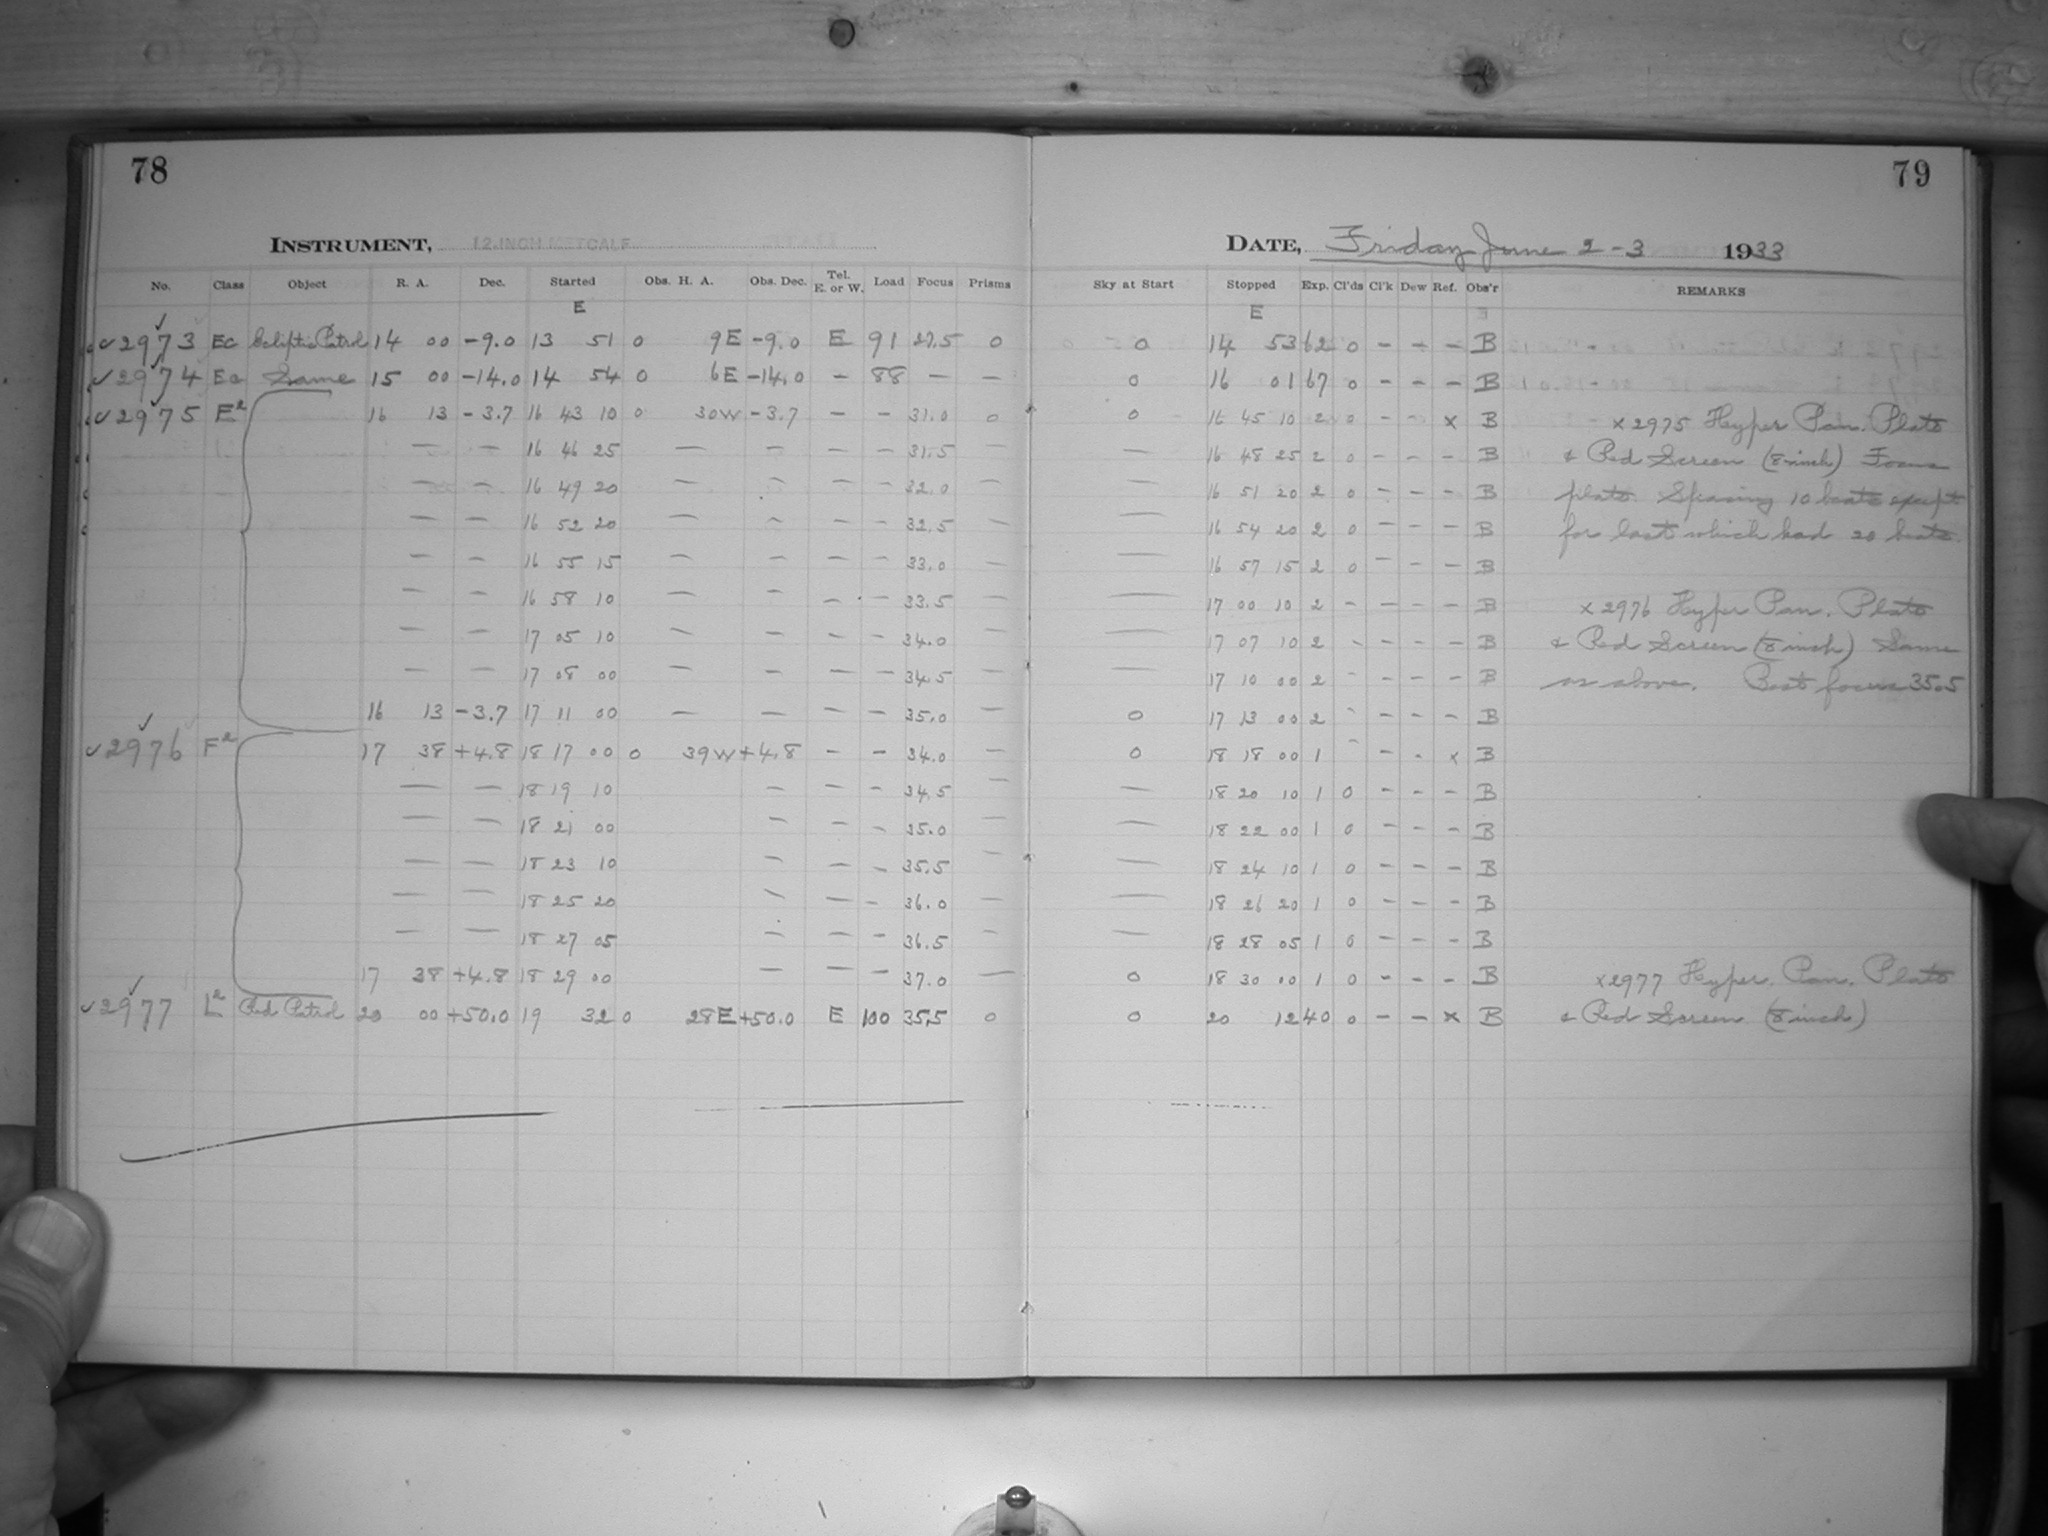 78
79
INSTRUMENT, 12-INCH METCALF
DATE, Friday June 2-3 1933
No. Class Object R. A. Dec. Started Obs. H. A. Obs. Dec. Tel. E. or W. Load Focus Prisms Sky at Start Stopped Exp. Cl'ds Cl'k Dew Ref. Obs'r REMARKS
E E
✓2973 Ec Ecliptic Patrol 14 00 -9.0 13 51 0 9E -9.0 E 91 27.5 0 0 14 53 62 0 - - - B
✓2974 Ec Same 15 00 -14.0 14 54 0 6E -14.0 - 88 - - 0 16 01 67 0 - - - B
✓2975 16 13 -3.7 16 43 10 0 30W -3.7 - - 31.0 0 0 16 45 10 2 0 - - x B x2975 Hyper Pan. Plate
— — 16 46 25 — — — — 31.5 — — 16 48 25 2 0 - - - B & Red Screen (8-inch) Focus
— — 16 49 20 — — — — 32.0 — — 16 51 20 2 0 - - - B plate. Spacing 10 beats except
— — 16 52 20 — — — — 32.5 — — 16 54 20 2 0 - - - B for last which had 20 beats.
— — 16 55 15 — — — — 33.0 — — 16 57 15 2 0 - - - B
— — 16 58 10 — — — — 33.5 — — 17 00 10 2 - - - - B x2976 Hyper Pan. Plate
— — 17 05 10 — — — — 34.0 — — 17 07 10 2 - - - - B & Red Screen (8 inch) Same
— — 17 08 00 — — — — 34.5 — — 17 10 00 2 - - - - B as above. Best focus 35.5
16 13 -3.7 17 11 00 — — — — 35.0 — 0 17 13 00 2 - - - - B
✓2976 F2 17 38 +4.8 18 17 00 0 39W +4.8 - - 34.0 — 0 18 18 00 1 - - - x B
— — 18 19 10 — — — 34.5 — — 18 20 10 1 0 - - - B
— — 18 21 00 — — — 35.0 — — 18 22 00 1 0 - - - B
— — 18 23 10 — — — 35.5 — — 18 24 10 1 0 - - - B
— — 18 25 20 — — — 36.0 — — 18 26 20 1 0 - - - B
— — 18 27 05 — — — 36.5 — — 18 28 05 1 0 - - - B
17 38 +4.8 18 29 00 — — — 37.0 — 0 18 30 00 1 0 - - - B x2977 Hyper. Pan. Plate
✓2977 L2 Red Patrol 20 00 +50.0 19 32 0 28E +50.0 E 100 35.5 0 0 20 12 40 0 - - x B & Red Screen (8 inch)